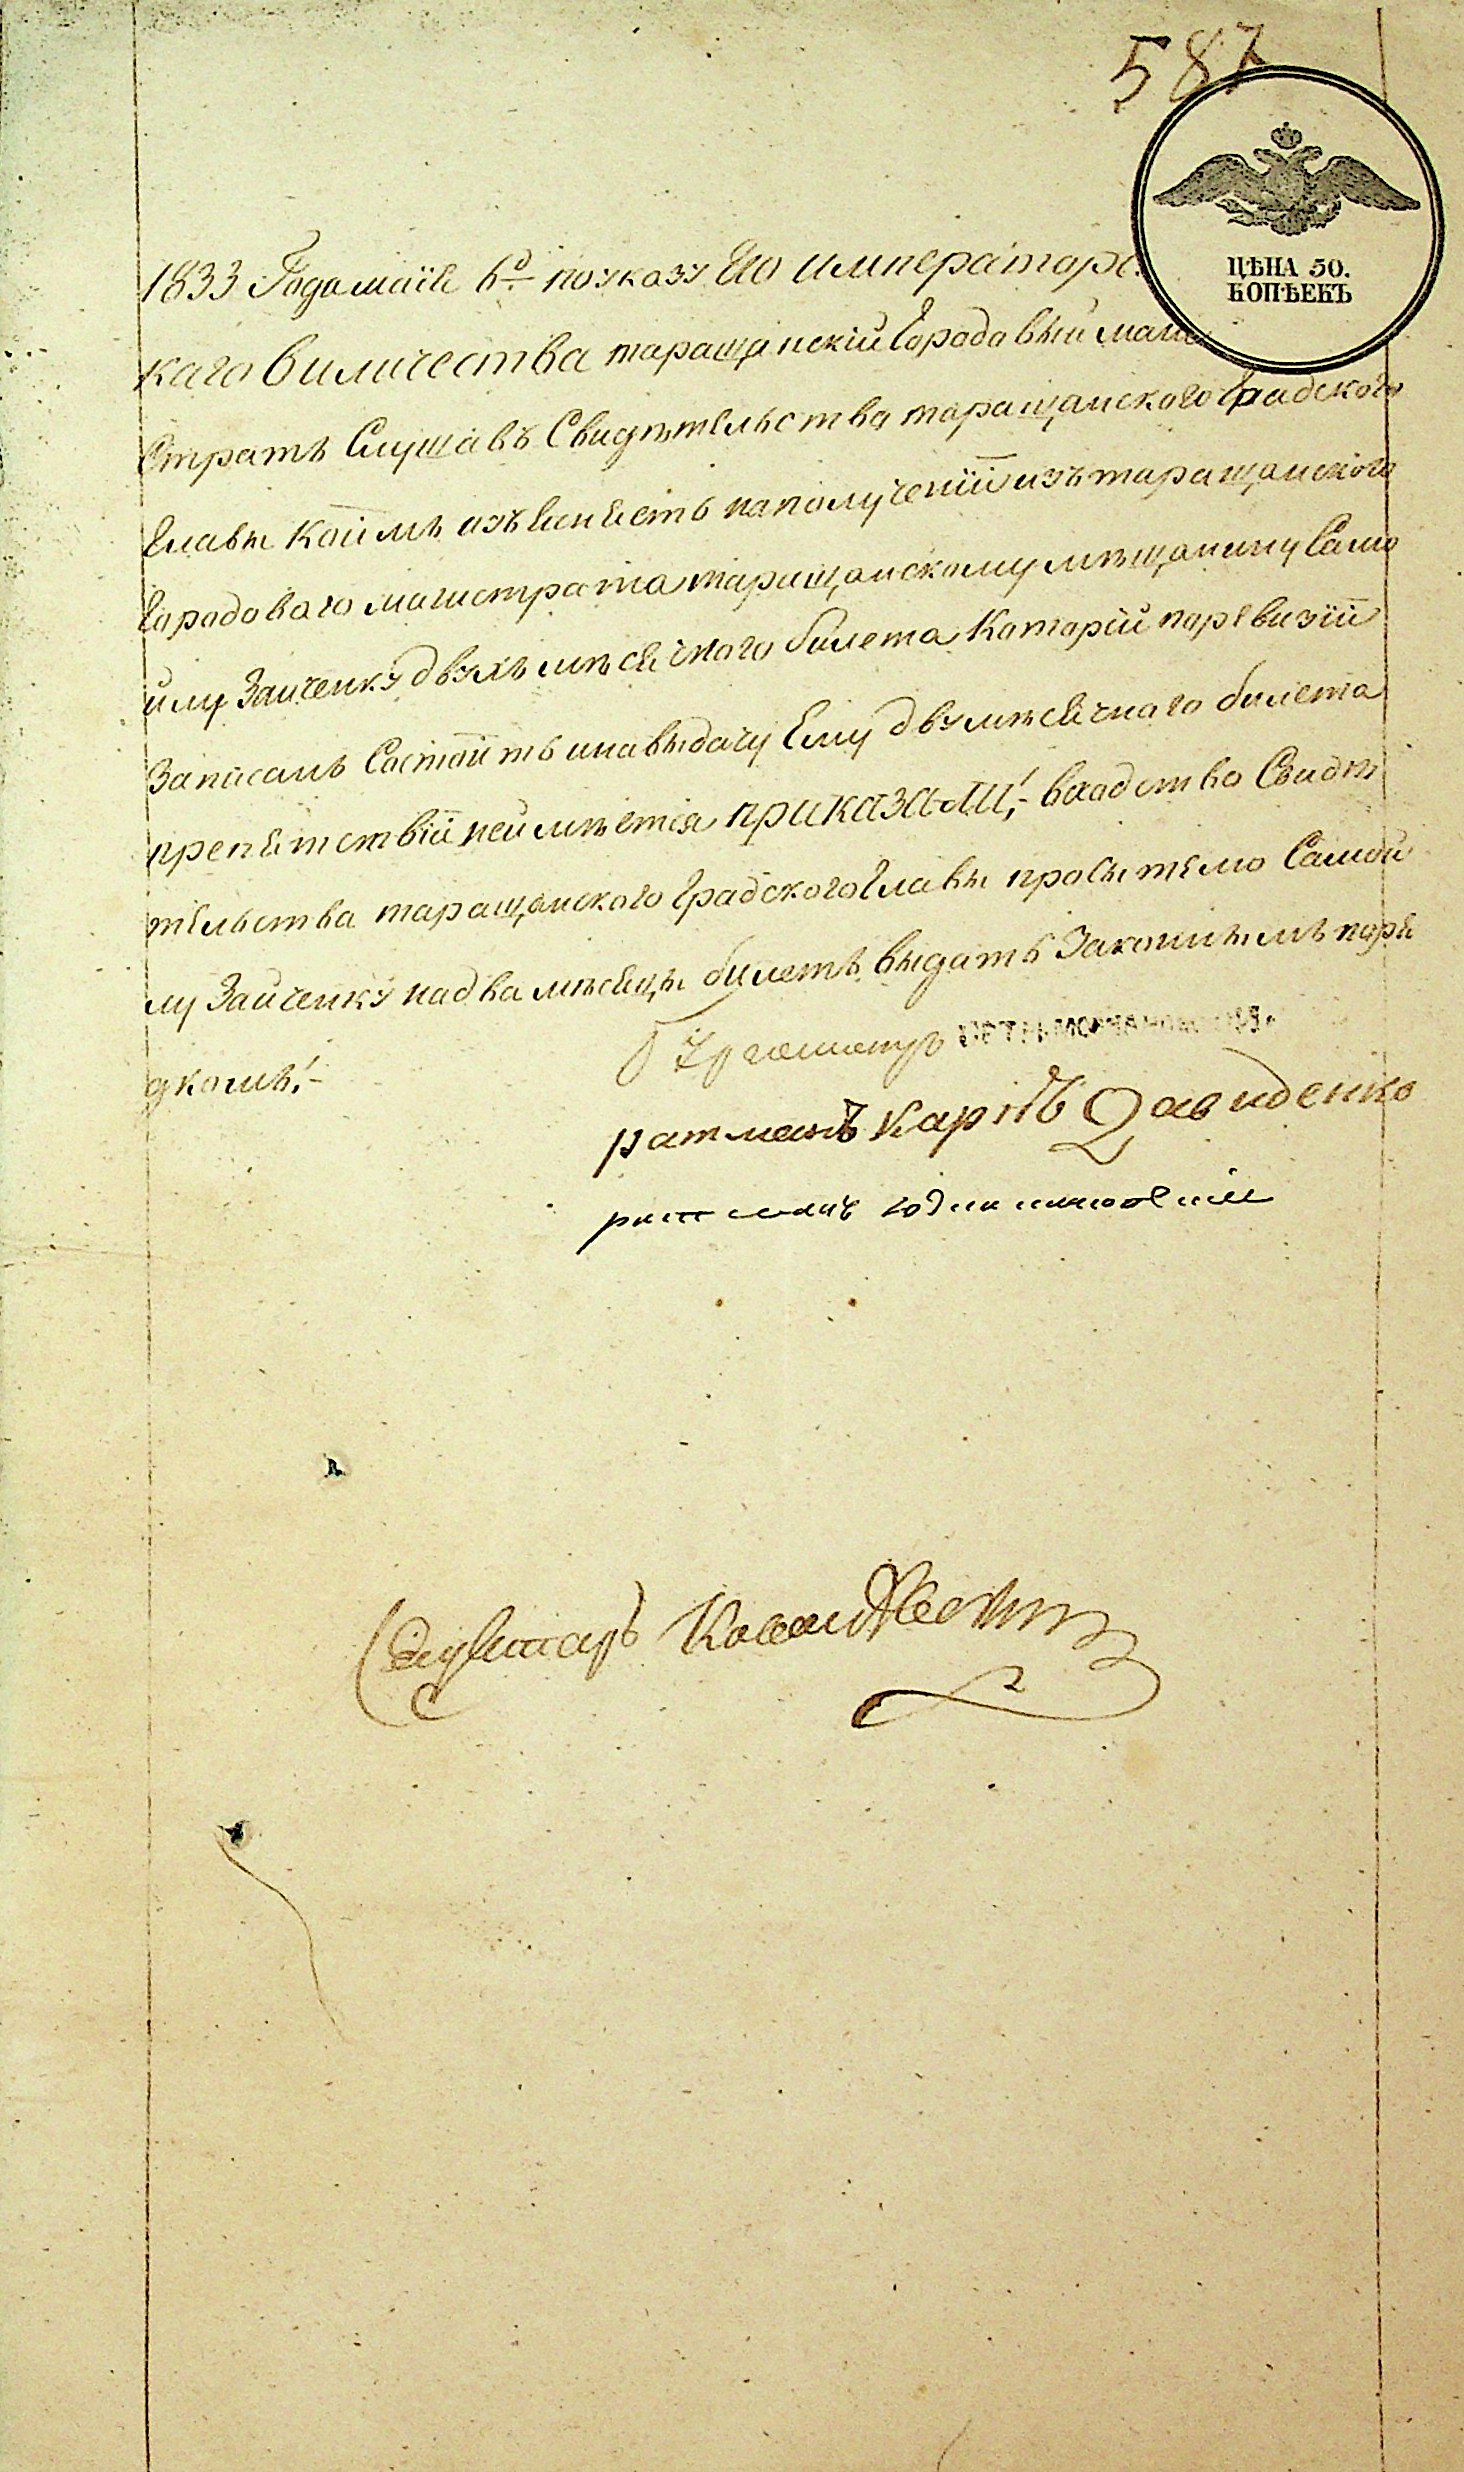 587
ЦѢНА 50.
КОПѢЕКЪ
1833 Года маія 6д. по указу Его императорс
каго виличества таращанскій Городовый маги
стратъ Слушавъ Свидѣтельства таращанского Градского
Главы коимъ изъясняетъ на полученіи изъ таращанского
Городового магистрата таращанскому мѣщанину Само
йлу Заиченку двухъ мѣсячного билета Которій поревизіи
записанъ Состоитъ и на выдачу Ему двумѣсячного билета
препятствій неимѣется приказали;- Свидѣ
тельства таращанского Градского Главы просителю Самой
лу Зайченку на два мѣсяцы билетъ выдать Законнымъ поря
дкомъ!-
ратманъ Карпъ Давиденко
ратманъ